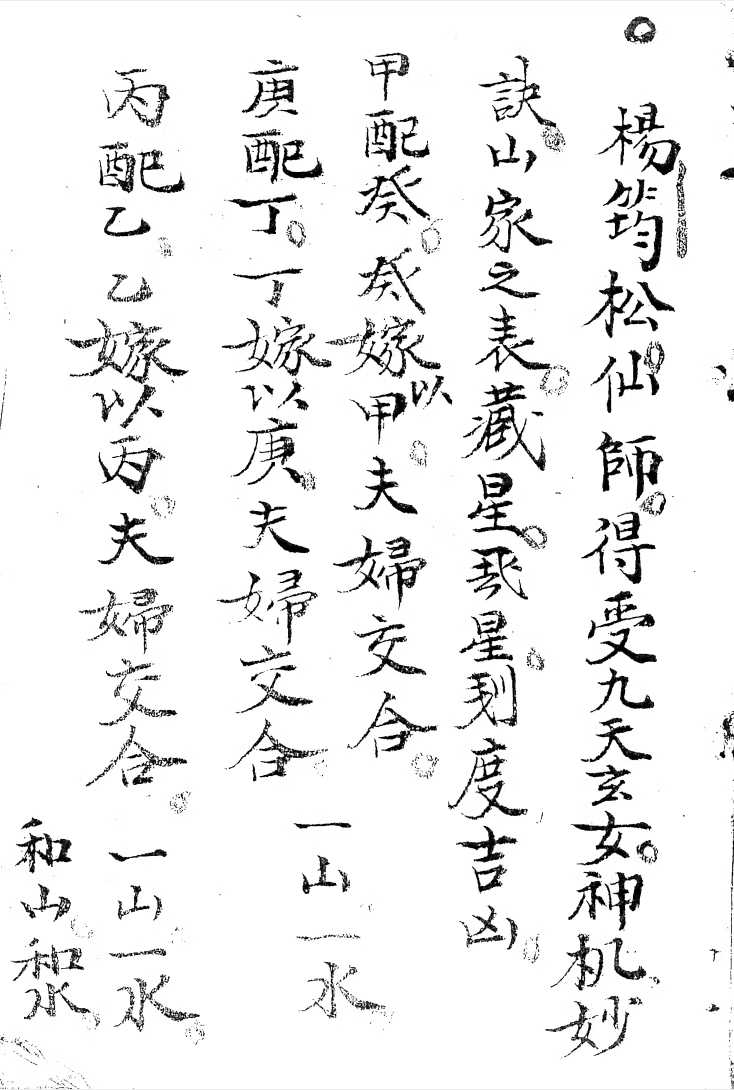 楊筠松仙師得受九天玄女神机妙
訣山家之表藏星飛星刻度吉凶
甲配癸癸嫁以甲夫婦交合
一山一水
庚配丁丁嫁以庚夫婦交合
丙配乙乙嫁以丙夫婦交合
一山一水
和山和水